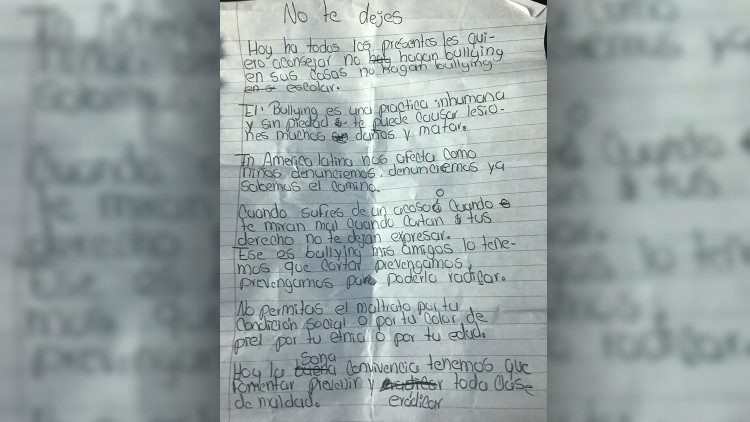 No te dejes
Hoy ha todos los presentes les qui-
ero aconsejar no hagan bullying
en sus casas no hagan bullying
escolar.
El Bullying es una practica inhumana
y sin piedad te puede causar lesio-
nes muchos daños y matar.
En America latina nos afecta como
niños denunciemos, denunciemos ya
sabemos el camino.
Cuando sufres de un acoso ó Cuando
te miran mal cuando cortan tus
derecho no te dejan expresar.
Ese es bullying mis amigos lo tene-
mos que cortar prevengamos,
prevengamos para poderlo radicar.
No permitas el maltrato por tu
condición social o por tu color de
piel por tu etnia ó por tu edad.
Hoy la sana convivencia tenemos que
fomentar prevenir y erádicar toda clase
de maldad.